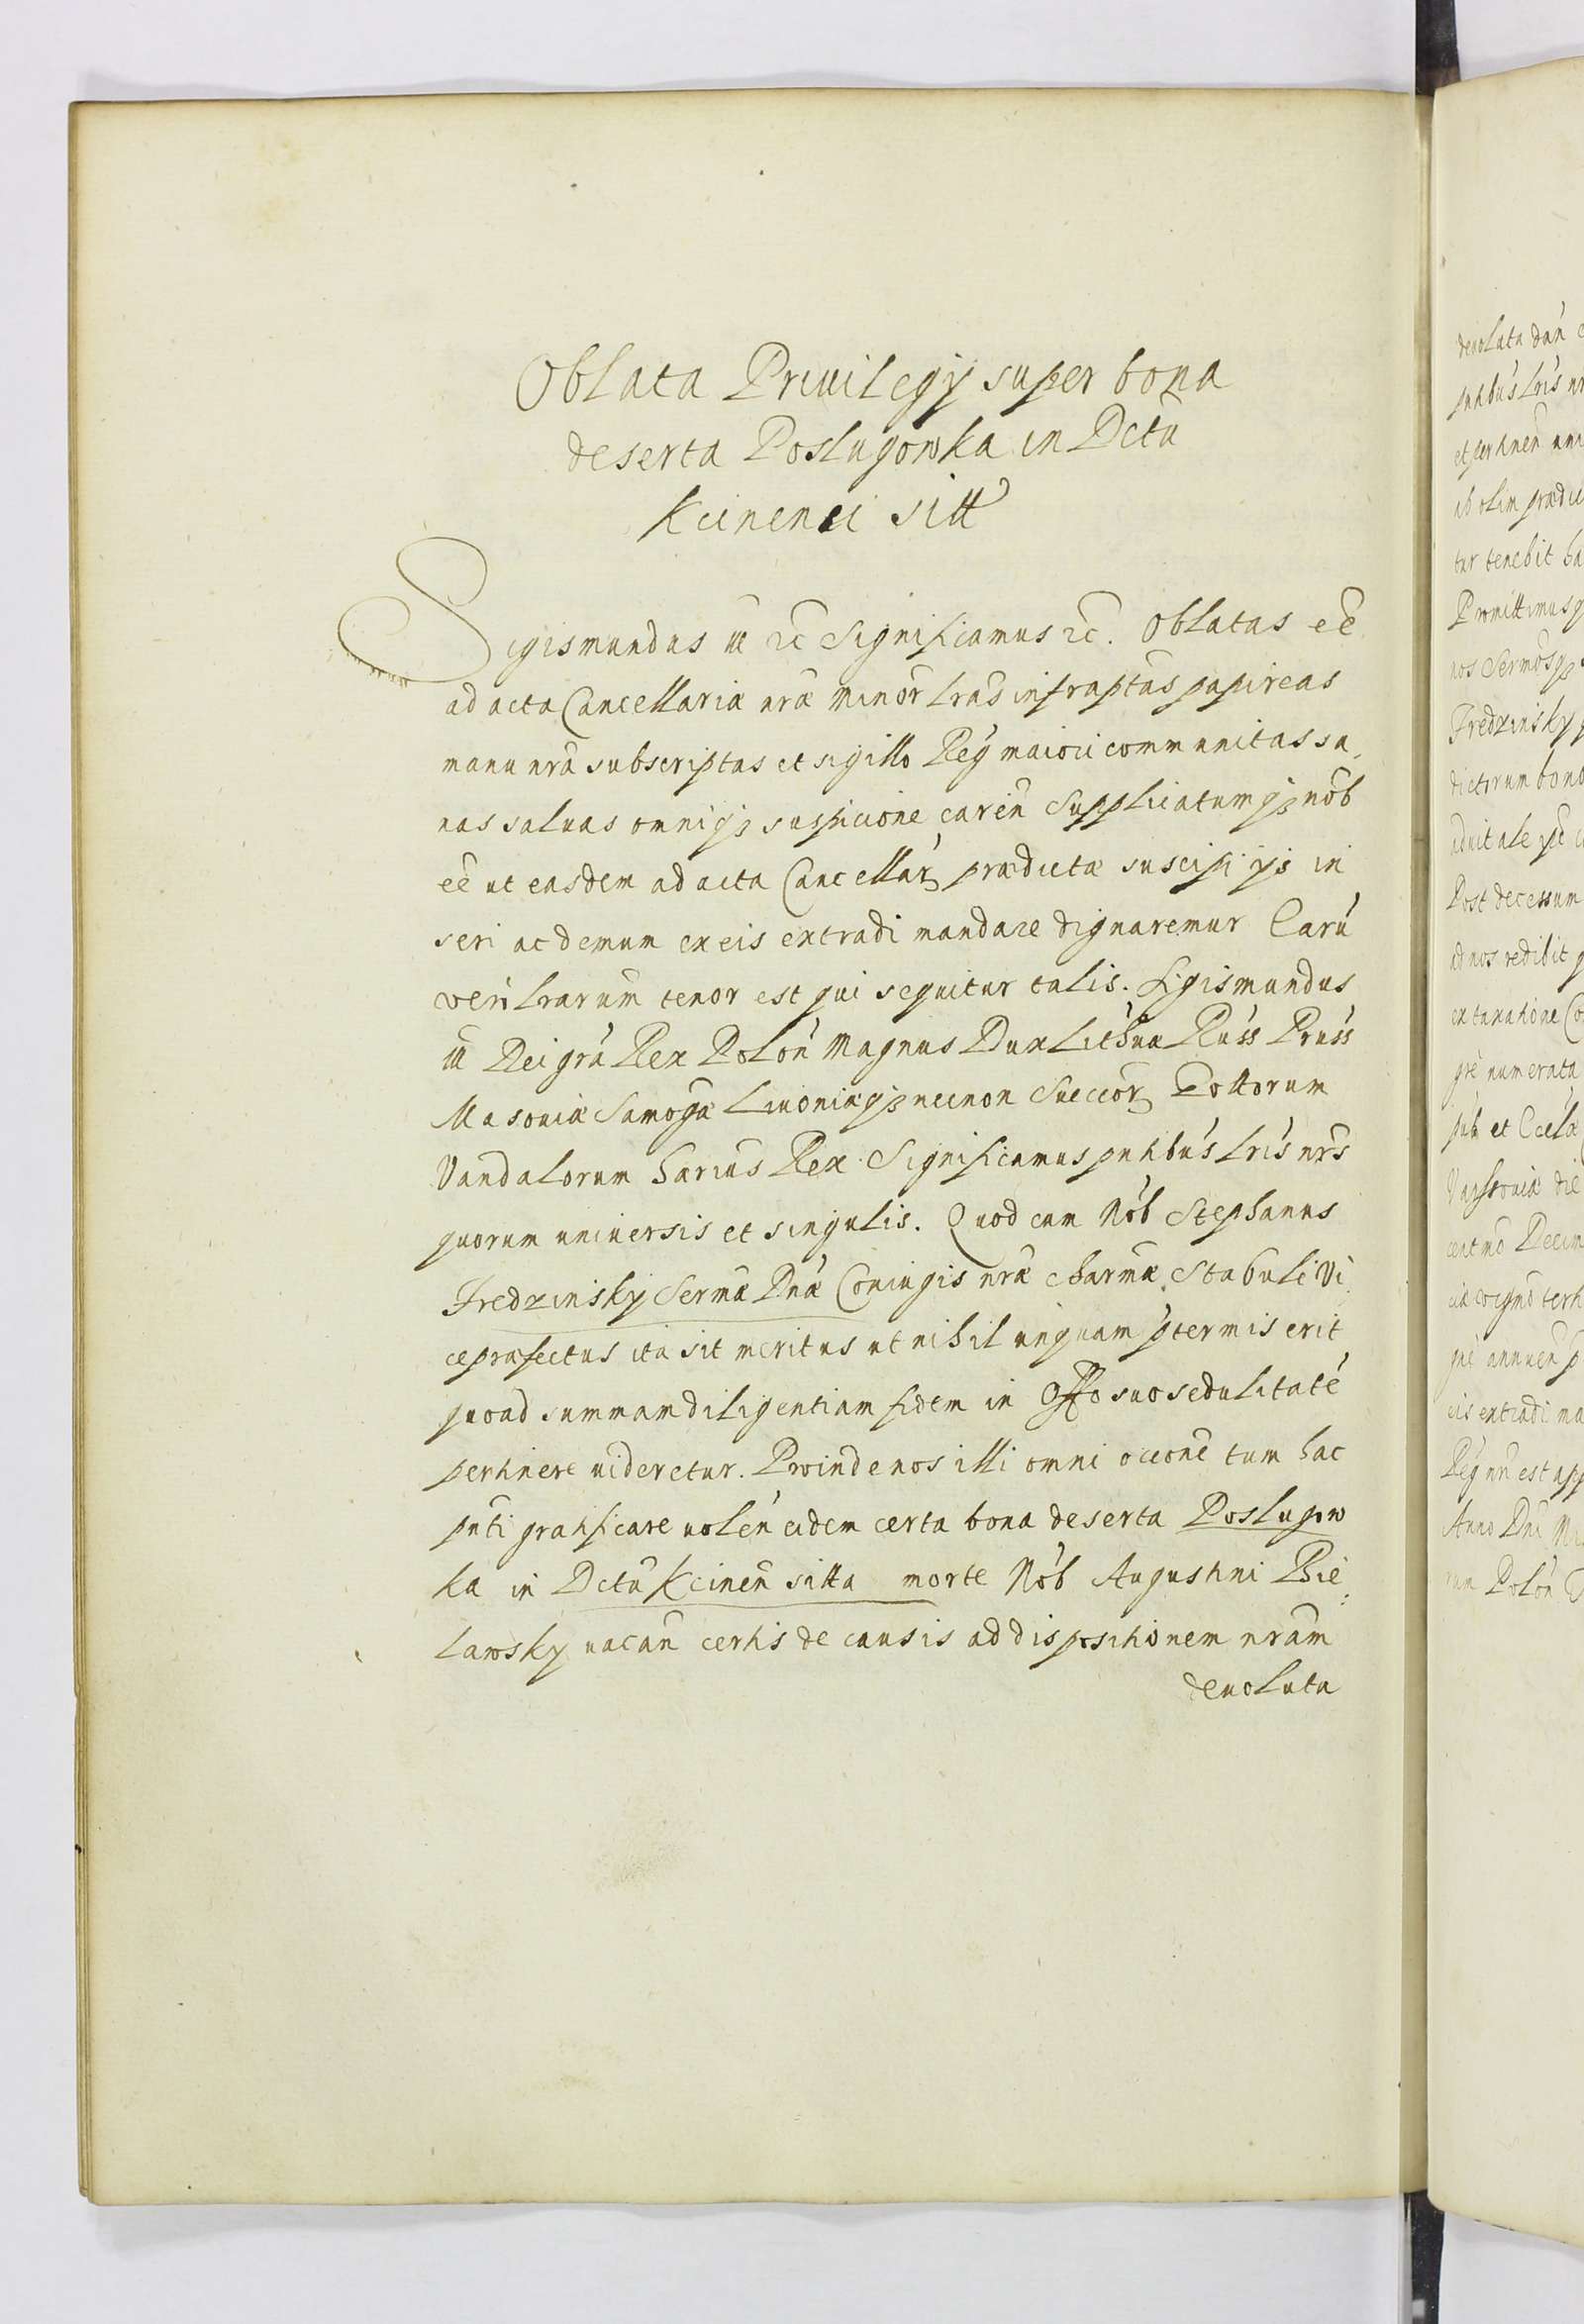 Oblata Priuilegy super bona
deserta Poslugowka in Dctu
Kcinenci sitt
Sigismundus III &c Significamus &c. Oblatas eē
ad acta Cancellariæ nræ minor lras infraptas papireas
manu nra subscriptas et sigillo Reg maiori communitas sa
nas saluas omniq; suspicione caren Supplicatumq; nob
eē ut easdem ad acta Cancellar prædictæ suscipi ijs in
seri ac demum ex eis extradi mandare dignaremur Caru
vero lrarum tenor est qui sequitur talis. Sigismundus
III Dei gra Rex Polon Magnus Dux Lithuæ Russ Pruss
Masouiæ Samogæ Liuoniæq; necnon Suecor Gottorum
Vandalorum hærius Rex. Significamus pntibus lris nrs
quorum uniuersis et singulis. Quod cum Nob Stephanus
Fredzinsky Sermæ Dnæ Coniugis nræ charmæ Stabuli Vi
ceprafectus ita sit meritus ut nihil unquam ptermiserit
quoad summam diligentiam fidem in Offo suo sedulitatē
pertinere uideretur. Proinde nos illi omni occone tum hac
pnti gratificare uolen eidem certa bona deserta Poslugow
ka in Dctu Kcinen sitta morte Nob Augustini Bie
lawsky uacan certis de causis ad dispositionem nram
deuoluta
deuoluta dan
pntibus lris nr
et pertinen
ab olim prædic
tur tenebit
Promittimus
nos Sermosq;
Fredzinsky
dictorum bono
aduitale
Post decessum
ad nos redibit
ex taxatione
numerata
et
Varsouiæ die
Decim
annuen
eis extradi ma
Reg nri est app
Anno Dni
Polon